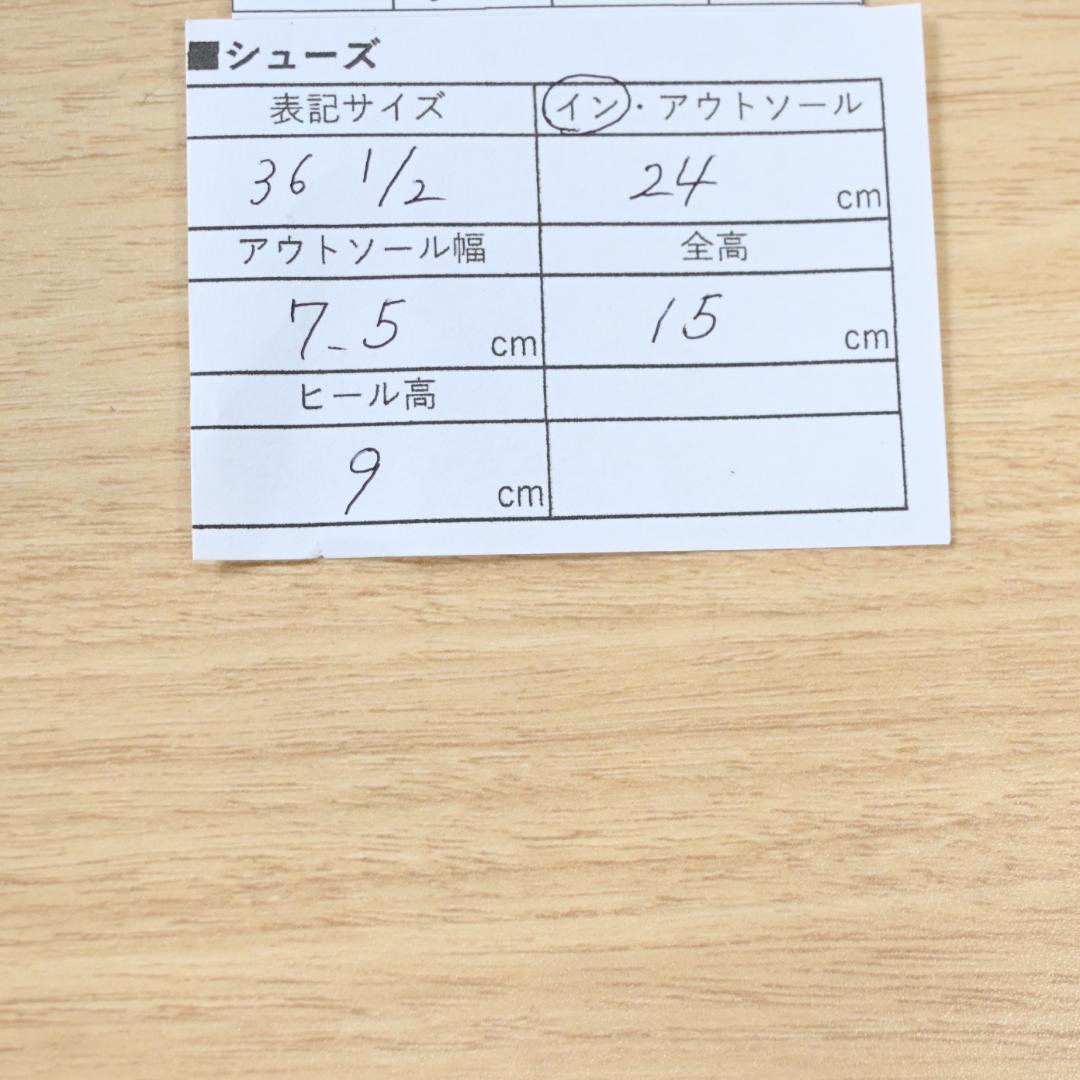 ■シューズ
表記サイズ イン・アウトソール
36 1/2 24 cm
アウトソール幅 全高
7.5 cm 15 cm
ヒール高
9 cm